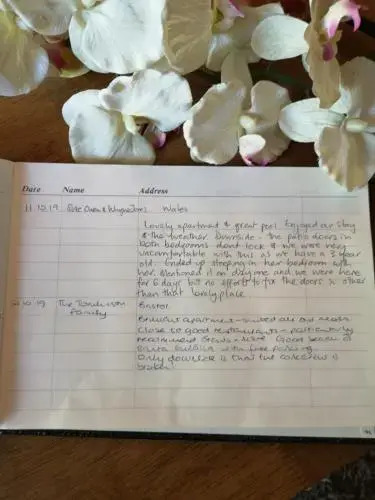 Date Name Address
11.10.19 Wales
Lovely apartment & great pool Enjoyed our stay
& the weather. Downside - the patio doors in
both bedrooms dont lock & we were very
uncomfortable with this as we have a 3 year
old. Ended up sleeping in her bedroom with
her. Mentioned it on day one and we were here
for 6 days but no effort to fix the doors other
than that lovely place
10.19 The Family Bristol
Brilliant apartment - suited all our needs
Close to good restaurants - particularly
recommend Good beach at
with free parking
Only downside is that the is
broken!